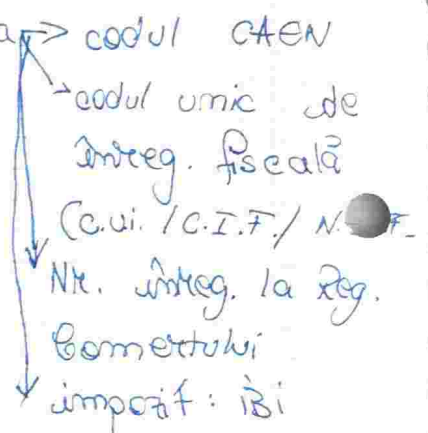 a → codul CAEN
→ codul unic de
înreg. fiscală
(c.ui. / C.I.F. / N F.
Nr. înreg. la Reg.
Comerțului
impozit: iBi